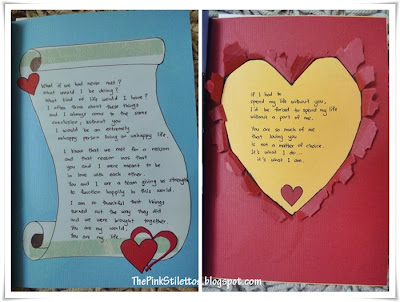 What if we had never met?
What would I be doing?
What kind of life would I have?
I often think about these things
and I always come to the same
conclusion, without you
I would be an extremely
unhappy person living an unhappy life
I know that we met for a reason
and that reason was that
you and I were meant to be
in love with each other.
You and I are a team giving us strength
to function happily in this world.
I am so thankful that things
turned out the way they did
and we were brought together.
You are my world,
You are my life..
If I had to
spend my life without you,
I'd be forced to spend my life
without a part of me.
You are so much of me
that loving you
is not a matter of choice.
It's what I do...
it's what I am.
ThePinkStilettos.blogspot.com